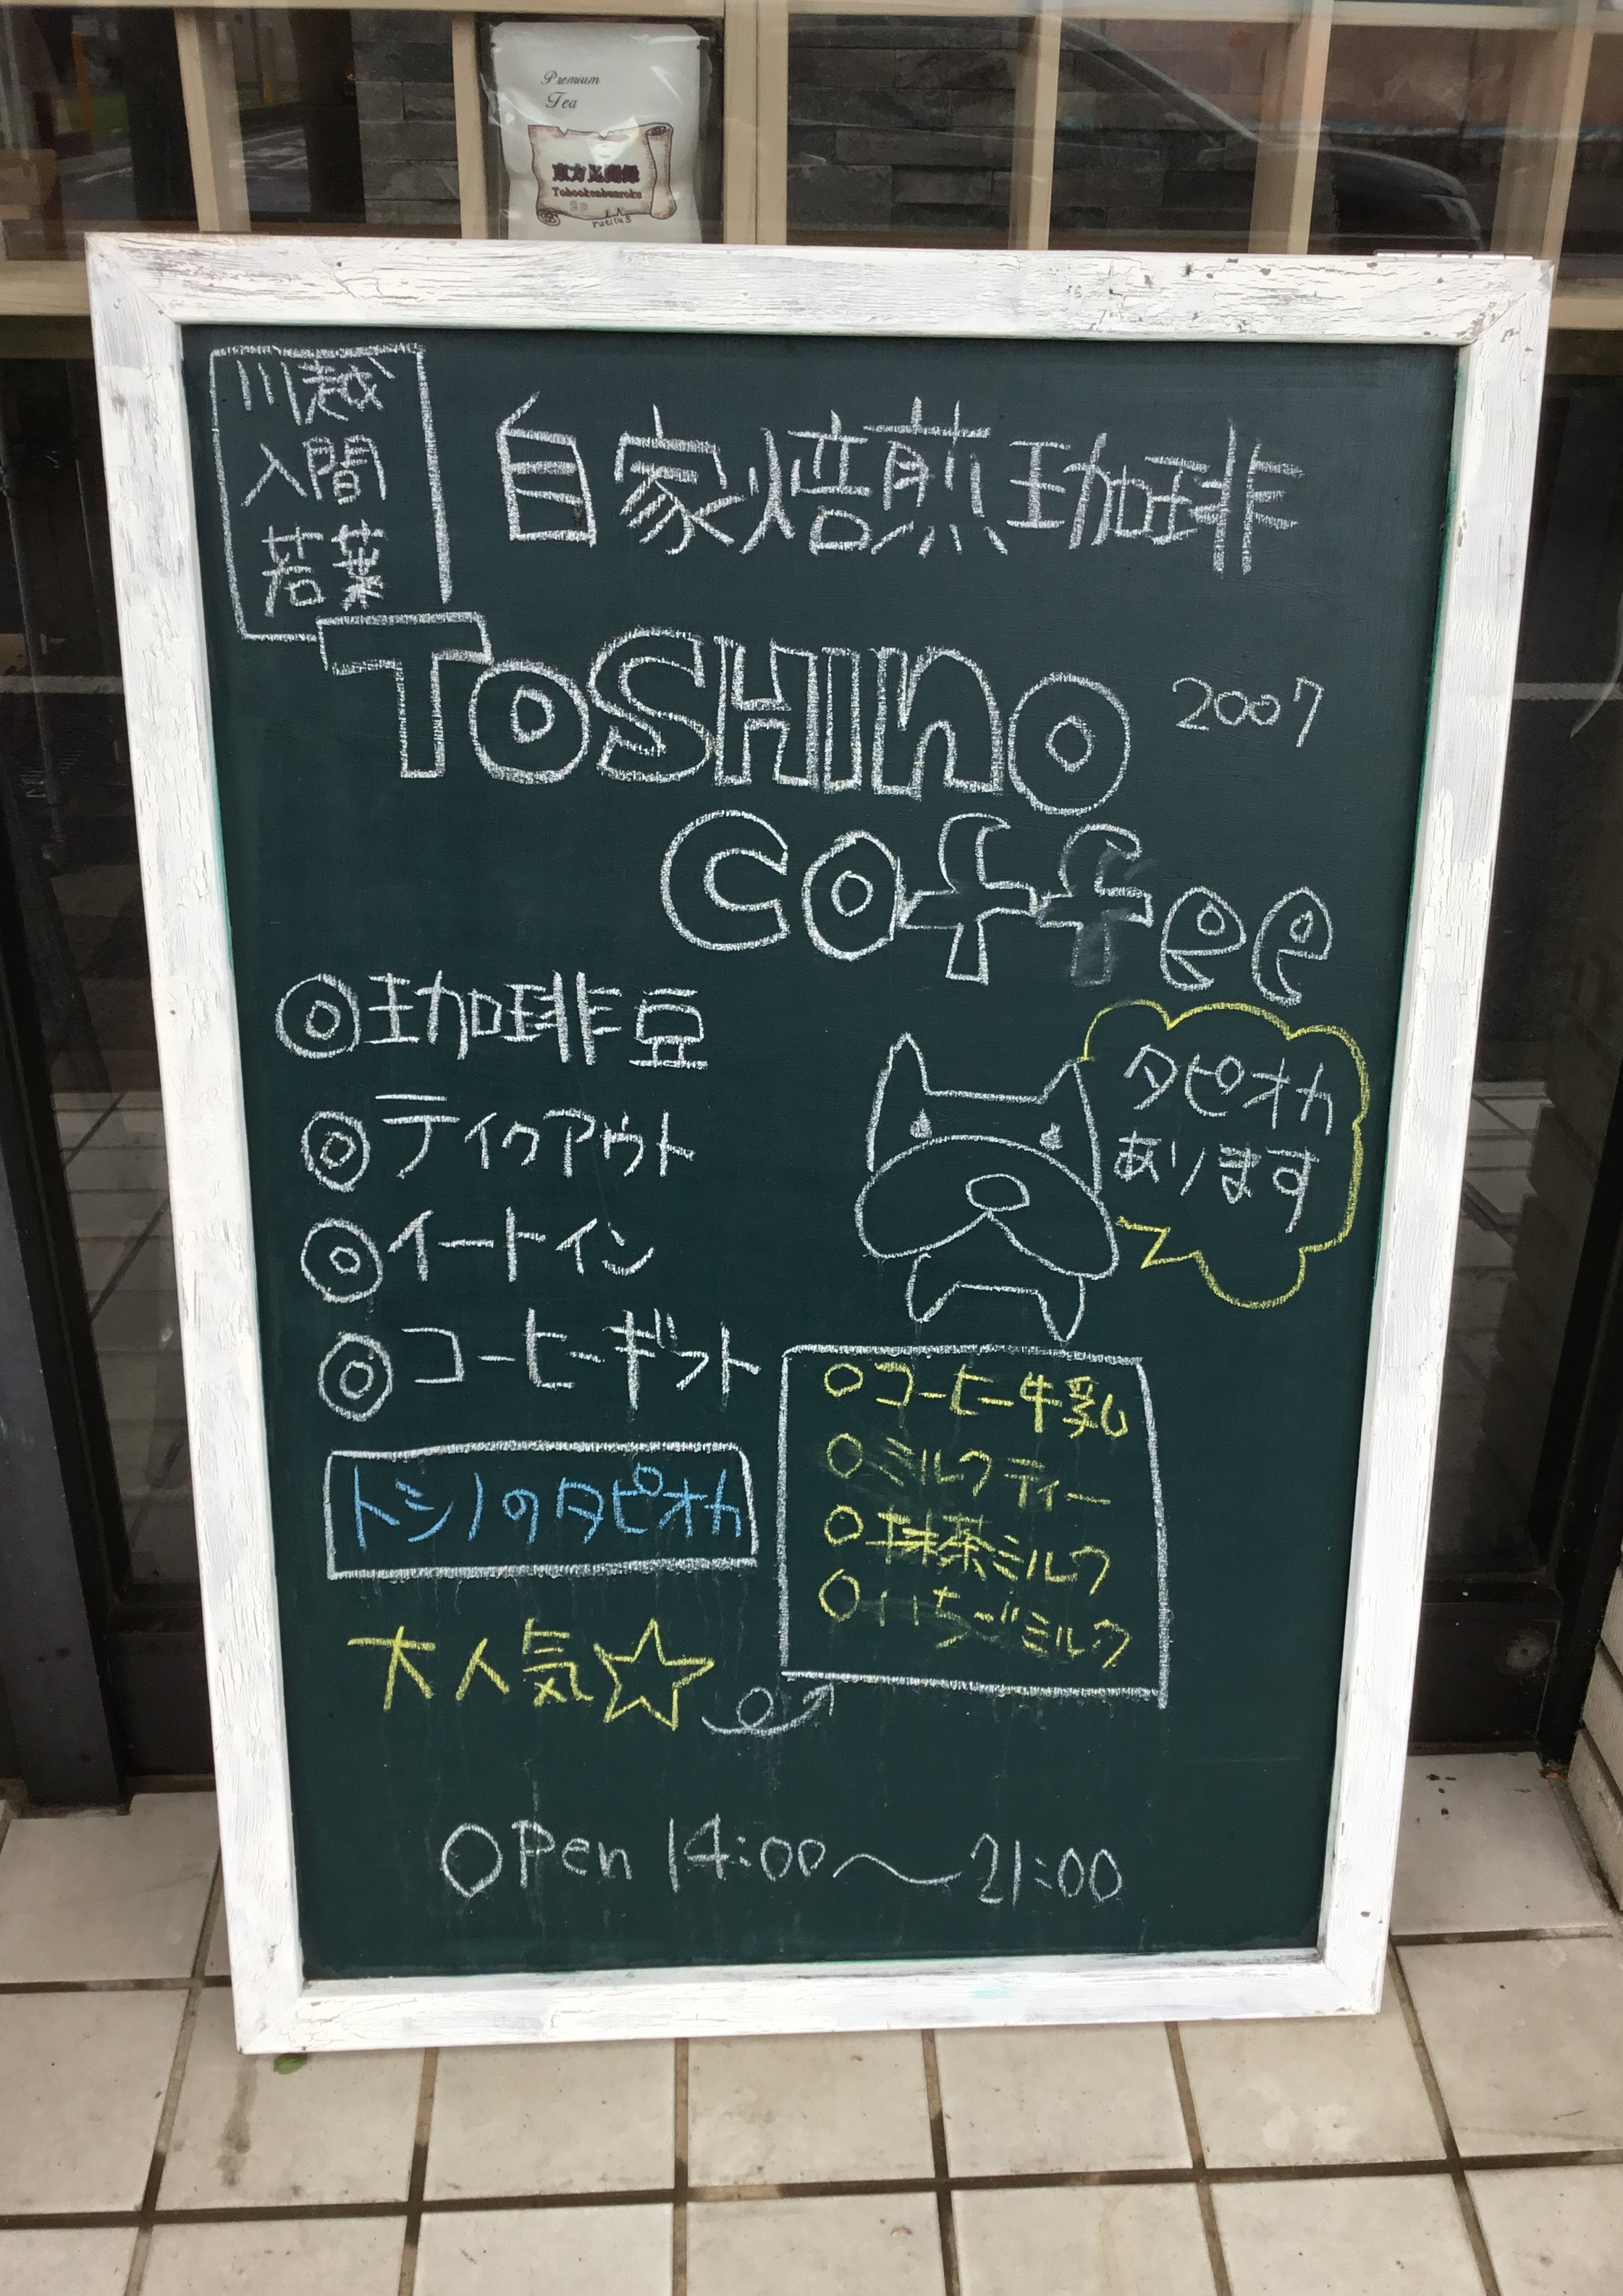 Premium
Tea
東方見聞録
Tohookenbunroku
rutilus
川越
入間
若葉
自家焙煎珈琲
TOSHINO 2007
coffee
◎珈琲豆
◎テイクアウト
◎イートイン
◎コーヒーギフト
タピオカ
あります
トシノのタピオカ
大人気☆
○コーヒー牛乳
○ミルクティー
○抹茶ミルク
○いちごミルク
OPen 14:00〜21:00